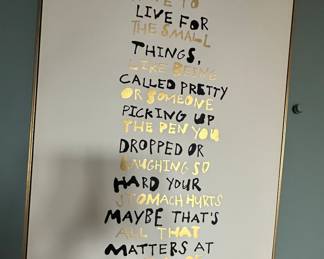 TO
LIVE FOR
THE SMALL
THINGS,
LIKE BEING
CALLED PRETTY
OR SOMEONE
PICKING UP
THE PEN YOU
DROPPED OR
LAUGHING SO
HARD YOUR
STOMACH HURTS
MAYBE THAT'S
ALL THAT
MATTERS AT